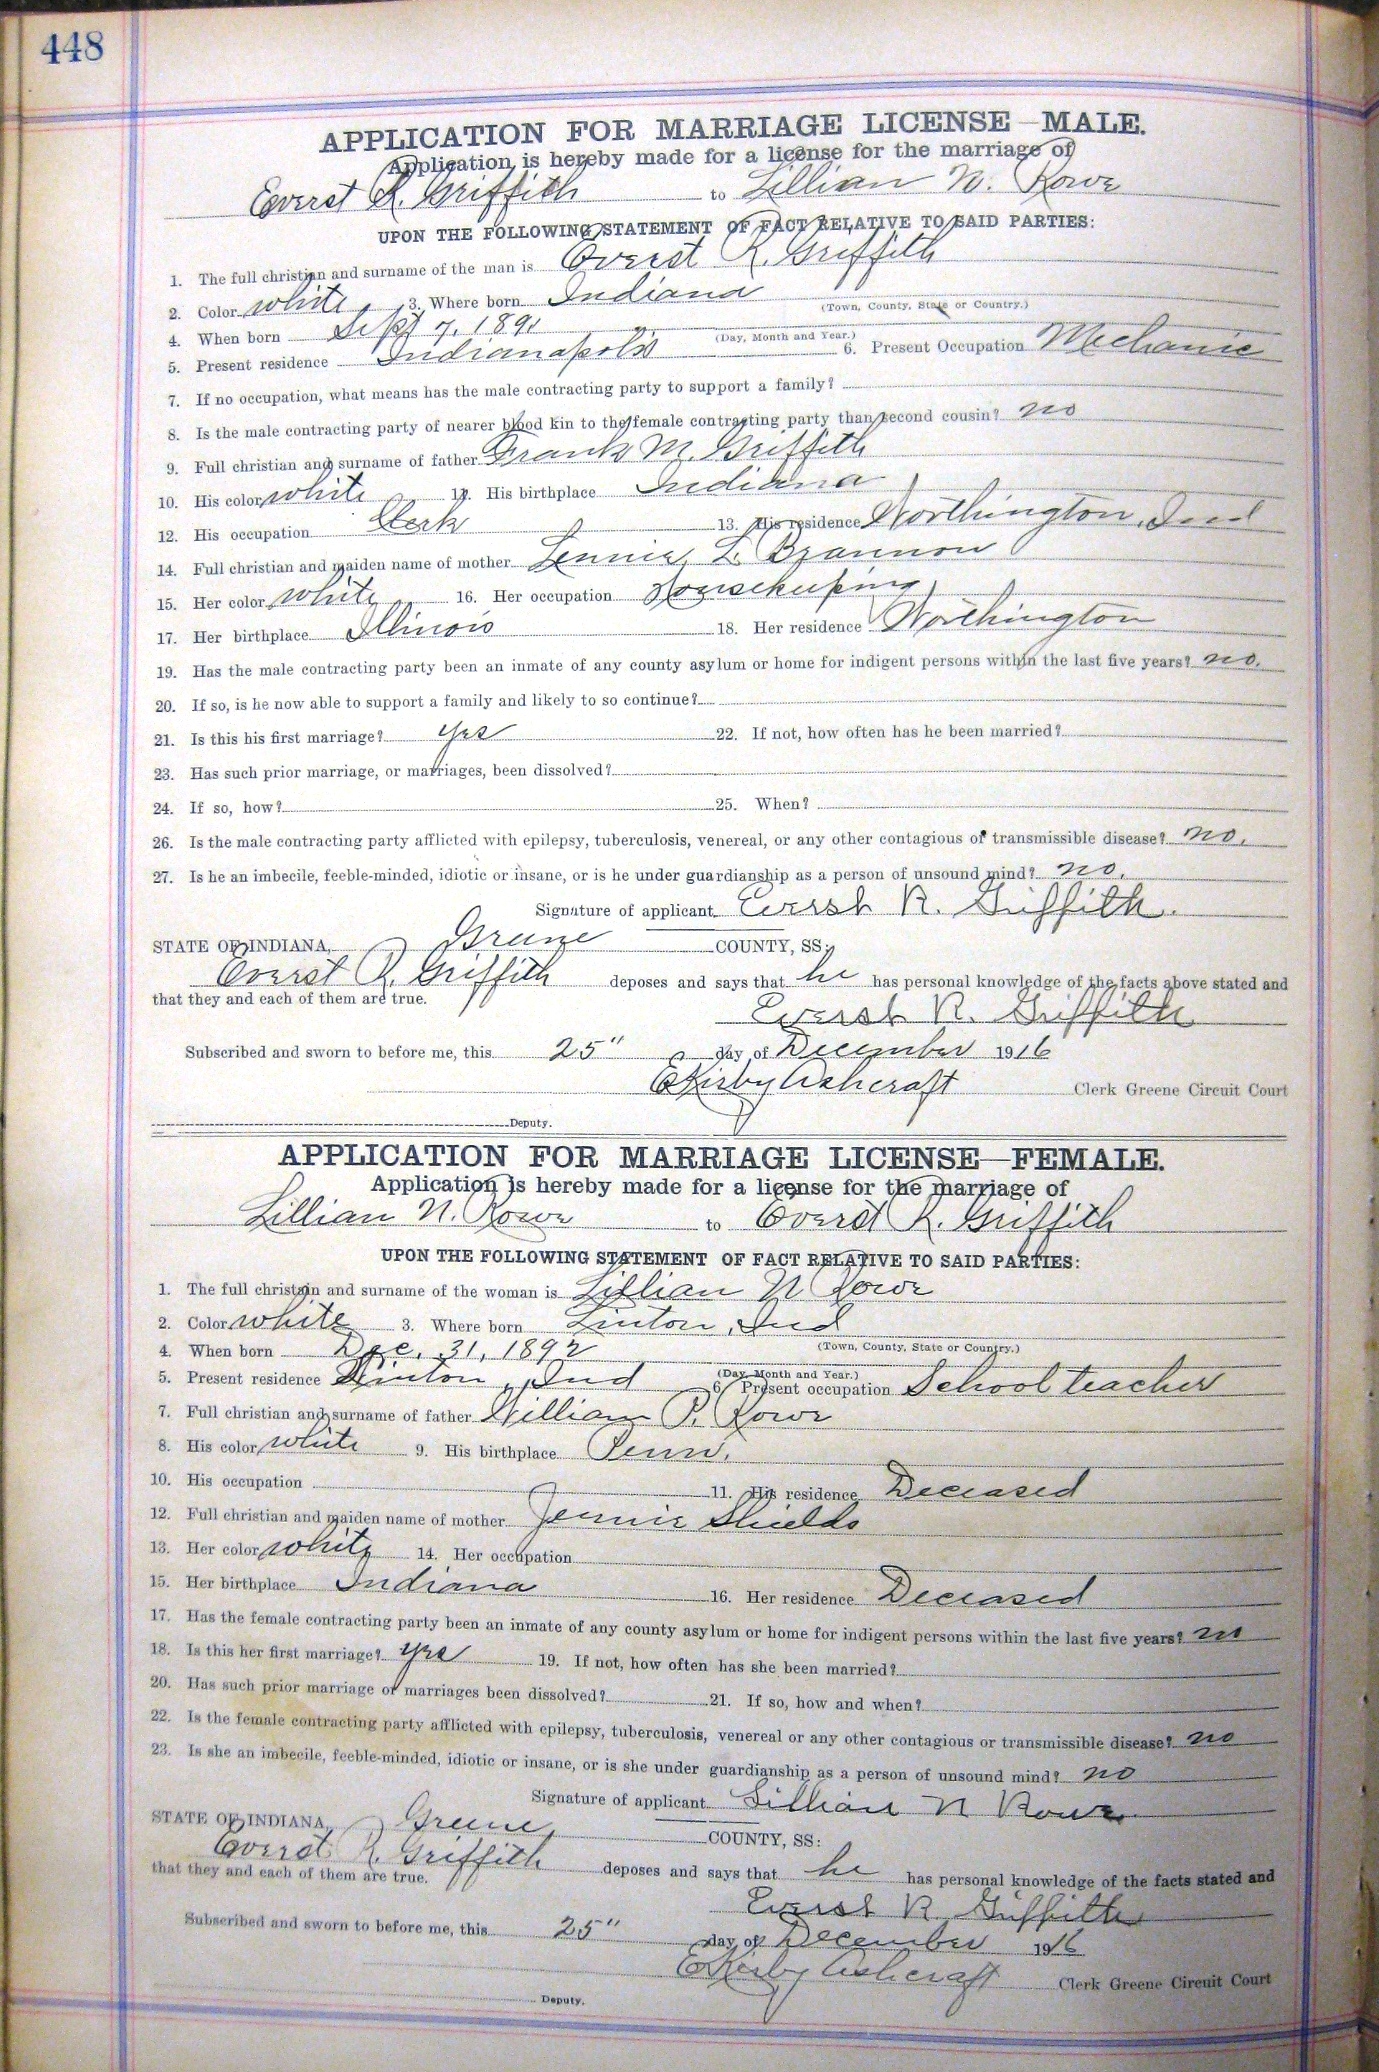 448
APPLICATION FOR MARRIAGE LICENSE—MALE.
Application is hereby made for a license for the marriage of
Everst R. Griffith to Lillian N. Rowe
UPON THE FOLLOWING STATEMENT OF FACT RELATIVE TO SAID PARTIES:
1. The full christian and surname of the man is Everst R. Griffith
2. Color white 3. Where born Indiana
(Town, County, State or Country.)
4. When born Sept 7, 1891
(Day, Month and Year.)
5. Present residence Indianapolis 6. Present Occupation Mechanic
7. If no occupation, what means has the male contracting party to support a family?
8. Is the male contracting party of nearer blood kin to the female contracting party than second cousin? no
9. Full christian and surname of father Frank M. Griffith
10. His color white 11. His birthplace Indiana
12. His occupation Clerk 13. His residence Worthington, Ind
14. Full christian and maiden name of mother Lennie L. Brannon
15. Her color white 16. Her occupation Housekeeping
17. Her birthplace Illinois 18. Her residence Worthington
19. Has the male contracting party been an inmate of any county asylum or home for indigent persons within the last five years? no.
20. If so, is he now able to support a family and likely to so continue?
21. Is this his first marriage? yes 22. If not, how often has he been married?
23. Has such prior marriage, or marriages, been dissolved?
24. If so, how? 25. When?
26. Is the male contracting party afflicted with epilepsy, tuberculosis, venereal, or any other contagious or transmissible disease? no.
27. Is he an imbecile, feeble-minded, idiotic or insane, or is he under guardianship as a person of unsound mind? no.
Signature of applicant Everst R. Griffith.
STATE OF INDIANA, Greene COUNTY, SS:
Everst R. Griffith deposes and says that he has personal knowledge of the facts above stated and
that they and each of them are true.
Everst R. Griffith
Subscribed and sworn to before me, this 25" day of December 1916
E Kirby Ashcraft Clerk Greene Circuit Court
Deputy.
APPLICATION FOR MARRIAGE LICENSE—FEMALE.
Application is hereby made for a license for the marriage of
Lillian N. Rowe to Everst R. Griffith
UPON THE FOLLOWING STATEMENT OF FACT RELATIVE TO SAID PARTIES:
1. The full christain and surname of the woman is Lillian N Rowe
2. Color white 3. Where born Linton, Ind
(Town, County, State or Country.)
4. When born Dec. 31, 1892
(Day, Month and Year.)
5. Present residence Linton, Ind 6. Present occupation School teacher
7. Full christian and surname of father William P. Rowe
8. His color white 9. His birthplace Penn.
10. His occupation 11. His residence Deceased
12. Full christian and maiden name of mother Jennie Shields
13. Her color white 14. Her occupation
15. Her birthplace Indiana 16. Her residence Deceased
17. Has the female contracting party been an inmate of any county asylum or home for indigent persons within the last five years? no
18. Is this her first marriage? yes 19. If not, how often has she been married?
20. Has such prior marriage or marriages been dissolved? 21. If so, how and when?
22. Is the female contracting party afflicted with epilepsy, tuberculosis, venereal or any other contagious or transmissible disease? no
23. Is she an imbecile, feeble-minded, idiotic or insane, or is she under guardianship as a person of unsound mind? no
Signature of applicant Lillian N Rowe
STATE OF INDIANA, Greene COUNTY, SS:
Everst R. Griffith deposes and says that he has personal knowledge of the facts stated and
that they and each of them are true.
Everst R. Griffith
Subscribed and sworn to before me, this 25" day of December 1916
E Kirby Ashcraft Clerk Greene Circuit Court
Deputy.